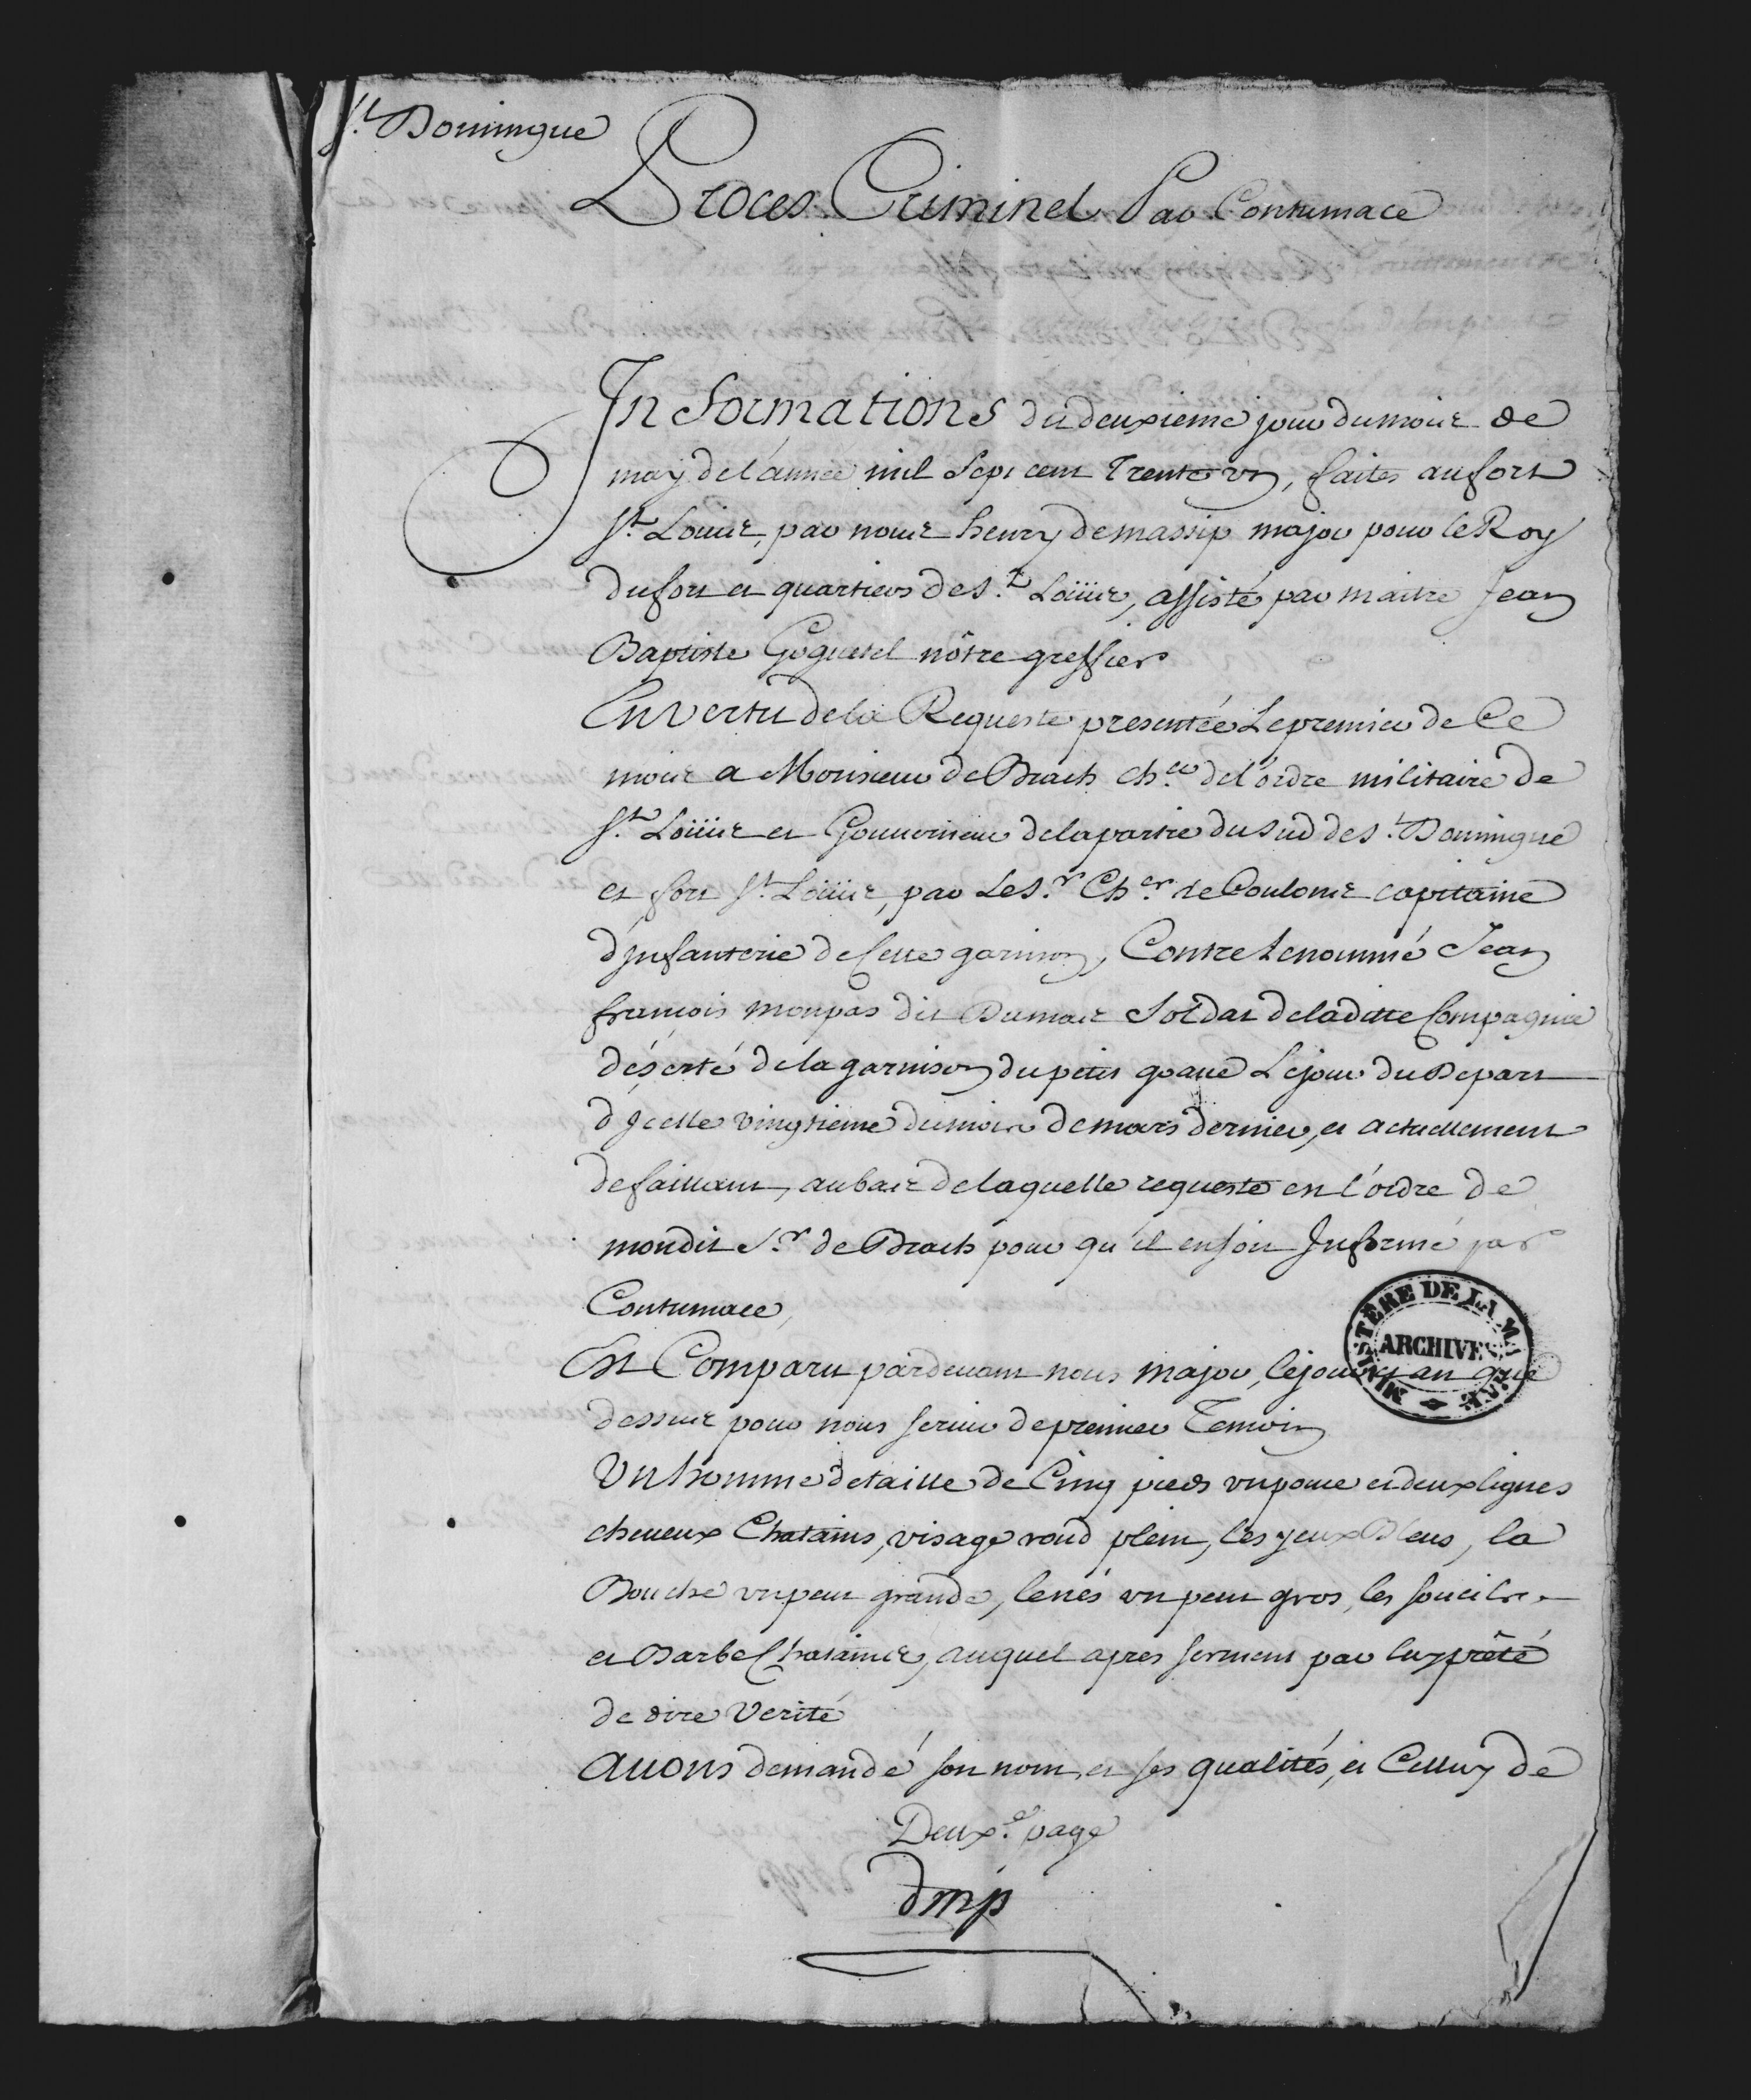 St. Domingue
Proces Criminel Par Contumace
Informations du deuxieme jour du mois de
may de l'année mil sept cent Trente un, faites au fort
St. Loüis, par nous henry de massip major pour le Roy
du fort et quartiers de St. Loüis, assisté par maitre Jean
Baptiste Goguetel nôtre greffier
En vertu de la Requeste presentée Le premier de Ce
mois a Monsieur de Brach cher. de l'ordre militaire de
St. Loüis et Gouverneur de la partie du sud de St. Domingue
et fort St. Loüis, par Le Sr. Cher. de Coulons capitaine
d'Infanterie de Cette garnison, Contre Le nommé Jean
françois monpas dit Dumais Soldat de la ditte Compagnie
déserté de la garnison du petit goave Le jour du Depart
d'Jcelle vingtieme du mois de mars dernier, et actuellement
defaillant, au bas de laquelle requeste est l'ordre de
mondit Sr. de Brach pour qu'il en soit Informé par
Contumace,
Est Comparu pardevant nous major, le jour et an que
dessus pour nous servir de premier Temoin
Un homme de taille de Cinq pieds un pouce et deux lignes
cheveux Chatains, visage rond plein, les yeux Bleus, la
Bouche un peu grande, le nés un peu gros, les sourcils
et Barbe Chatains, auquel apres serment par luy prêté
de dire Verité
avons demandé son nom, et ses qualités, et Celluy de
Deuxe. page
dmp
MINISTÈRE DE LA MARINE
ARCHIVES